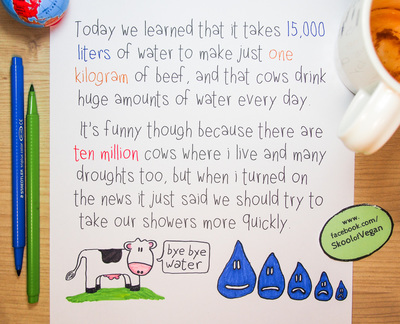 Today we learned that it takes 15,000
liters of water to make just one
kilogram of beef, and that cows drink
huge amounts of water every day.
It's funny though because there are
ten million cows where i live and many
droughts too, but when i turned on
the news it just said we should try to
take our showers more quickly.
bye bye
water
www.
facebook.com/
SkoolofVegan